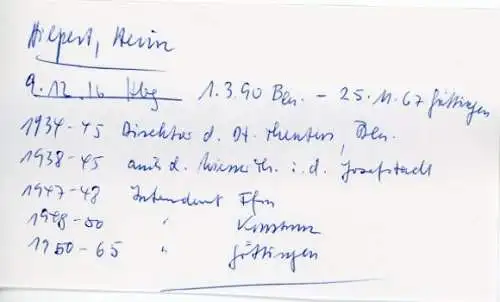 Hilpert, Heinz
9.12.16 Hbg 1.3.90 Bln. – 25.11.67 Göttingen
1934-45 Direktor d. Dt. Theaters, Bln.
1938-45 auch d. Wiener Th. i. d. Josefstadt
1947-48 Intendant Ffm
1948-50 " Konstanz
1950-65 " Göttingen